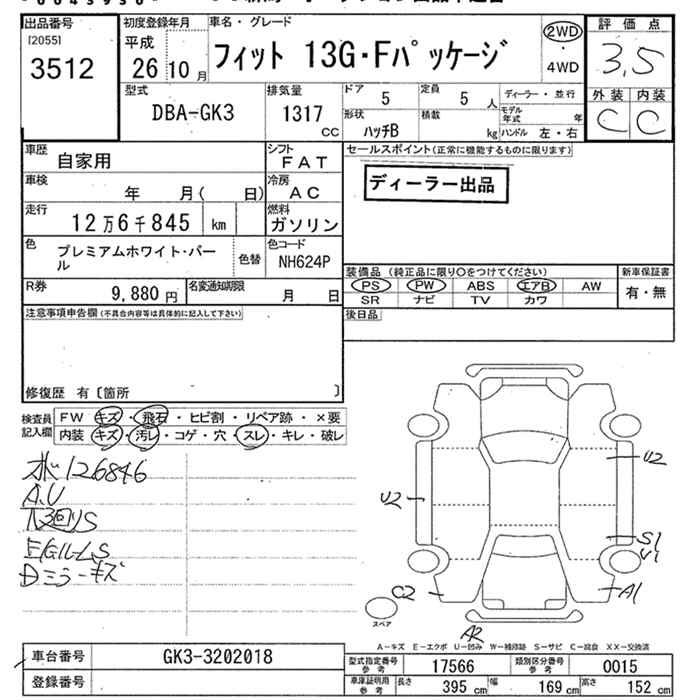 出品番号
[2055]
3512
初度登録年月
平成
26年10月
車名・グレード
フィット 13G・Fパッケージ
2WD
・
4WD
評価点
3.5
外装 内装
C C
型式
DBA-GK3
排気量
1317
CC
ドア 5
定員 5 人
形状
ハッチB
積載
kg
ディーラー・並行
モデル
年式 年
ハンドル 左・右
車歴
自家用
シフト
FAT
車検
年 月( 日)
冷房
AC
走行
12万6千845 km
燃料
ガソリン
色
プレミアムホワイト・パー
ル
色替
色コード
NH624P
R券
9,880 円
名変通知期限
月 日
セールスポイント(正常に機能するものに限ります)
ディーラー出品
装備品 (純正品に限り○をつけてください)
PS PW ABS エアB AW
SR ナビ TV カワ
新車保証書
有・無
後日品
注意事項申告欄(不具合内容等は具体的に記入して下さい)
修復歴 有〔箇所 〕
検査員
記入欄
FW キズ・飛石・ヒビ割・リペア跡・×要
内装 キズ・汚レ・コゲ・穴・スレ・キレ・破レ
126846
A.U
E/Gルーム S
Dミラーキズ
U2
U2
S1
U1
C2
A1
スペア
A2
A-キズ E-エクボ U-凹み W-補修跡 S-サビ C-腐食 XX-交換済
車台番号
GK3-3202018
登録番号
型式指定番号
参考
17566
類別区分番号
参考
0015
車庫証明用
参考
長さ 395 cm
幅 169 cm
高さ 152 cm